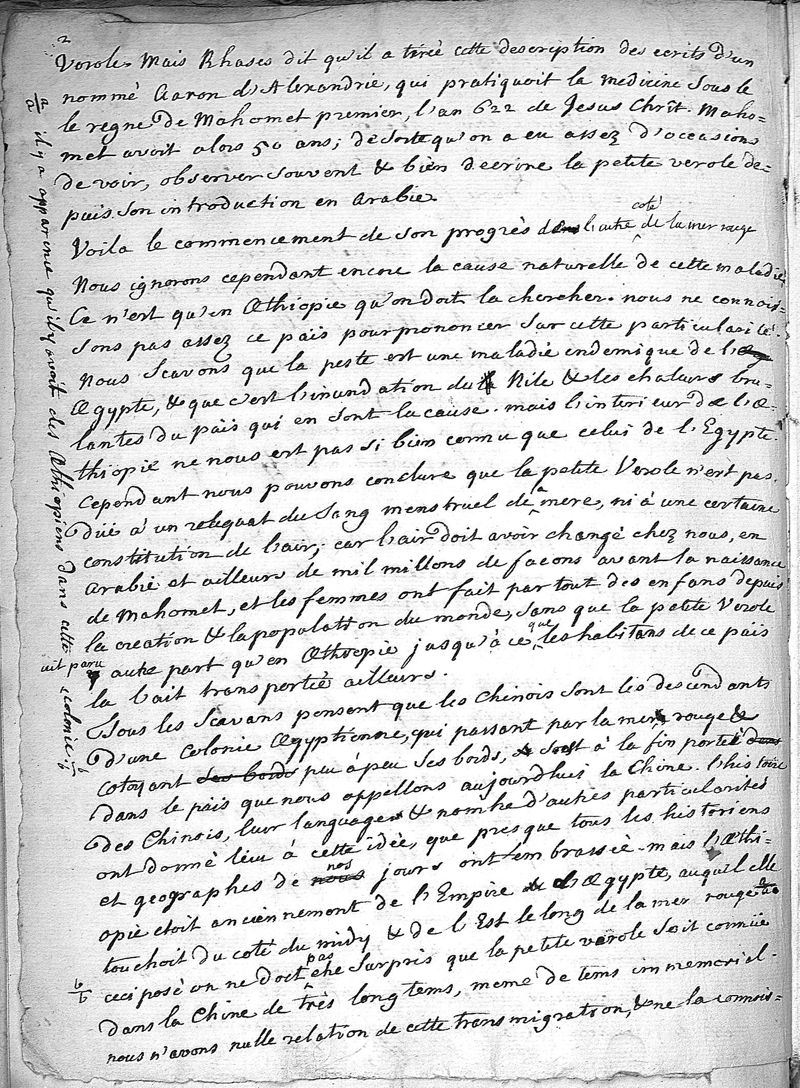 2
Verole. Mais Rhases dit qu'il a tirée cette description des ecrits d'un
nommé Aaron d'Alexandrie, qui pratiquoit la medicine sous le
le regne de Mahomet premier, l'an 622 de Jesus Chrît. Maho=
met avoit alors 50 ans; de sorte qu'on a eu assez d'occasions
de voir, observer souvent & bien decrire la petite verole de=
puis son introduction en Arabie.
Voila le commencement de son progrès dans l'autre coté de la mer rouge
Nous ignorons cependant encore la cause naturelle de cette maladie,
Ce n'est qu'en Æthiopie qu'on doit la chercher. nous ne connois=
sons pas assez ce païs pour prononcer sur cette particularité.
Nous scavons que la peste est une maladie endemique de l'Æg
Ægypte, & que c'est l'inundation du Nile & les chaleurs bru=
lantes du païs qui en sont la cause. mais l'interieur de l'Æ=
thiopie ne nous est pas si bien connu que celui de l'Egypte.
Cependant nous pouvons conclure que la petite Verole n'est pas
düe à un reliquat du sang menstruel de la mere, ni à une certaine
constitution de l'air; car l'air doit avoir changé chez nous, en
Arabie et ailleurs de mil millons de facons avant la naissance
de Mahomet, et les femmes ont fait par tout des enfans depuis
la creation & la population du monde, sans que la petite Verole
ait paru autre part qu'en Æthiopie jusqu'à ce que les habitans de ce païs
la l'ait transportée ailleurs.
Tous les Scavans pensent que les Chinois sont les descendants
d'une Colonie Ægyptienne, qui passant par la mer rouge &
cotoyant des bords peu à peu ses bords, & soit à la fin portée dans
dans le païs que nous appellons aujourdhui la Chine. L'histoire
des Chinois, leur languages & nombre d'autres particularités
ont donné lieu à cette idée, que presque tous les historiens
et geographes de nous nos jours ont embrassée. mais l'Æthi=
opie etoit anciennement de l'Empire de l'Ægypte, auquel elle
touchoit du coté du midy & de l'Est le long de la mer rouge a/a
b/b ceci posé on ne doit pas etre surpris que la petite verole soit connüe
dans la Chine de très long tems, meme de tems immemorial.
nous n'avons nulle relation de cette transmigration, & ne la connois=
a/a il y a apparence qu'il y avoit des Æthiopiens dans cette colonie. b/b